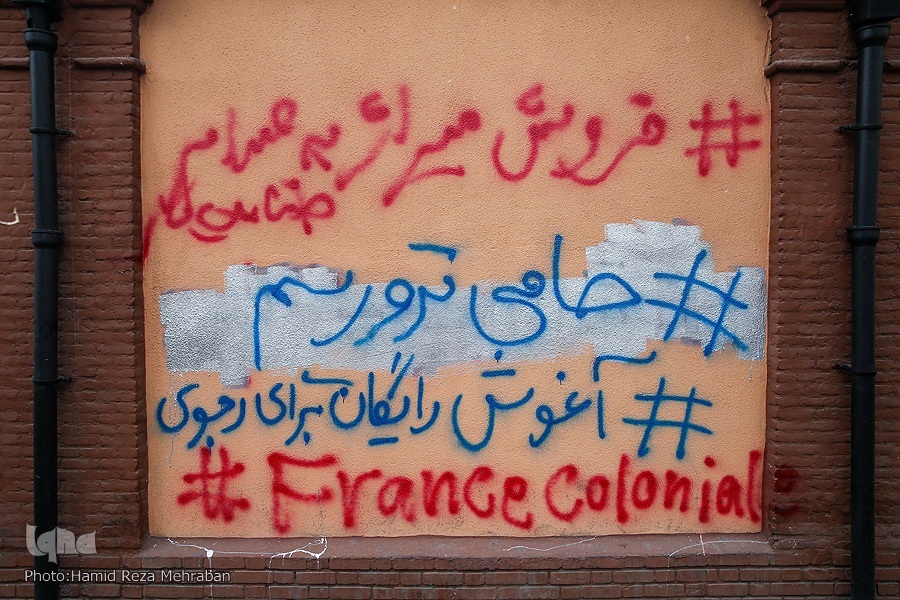 #فروش میراژ به صدام
خائن
#حامی ترورسم
#آغوش رایگان برای رجوی
#France colonial
iqna
Photo:Hamid Reza Mehraban